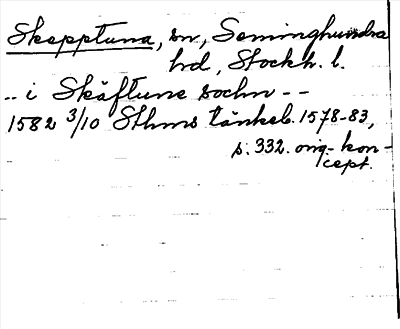 Skepptuna, sn, Seminghundra
hd, Stockh. l.
-- i Skäftune sochn --
1582 3/10 Sthms tänkeb. 1578-83,
s. 332. orig.-kon-
cept.